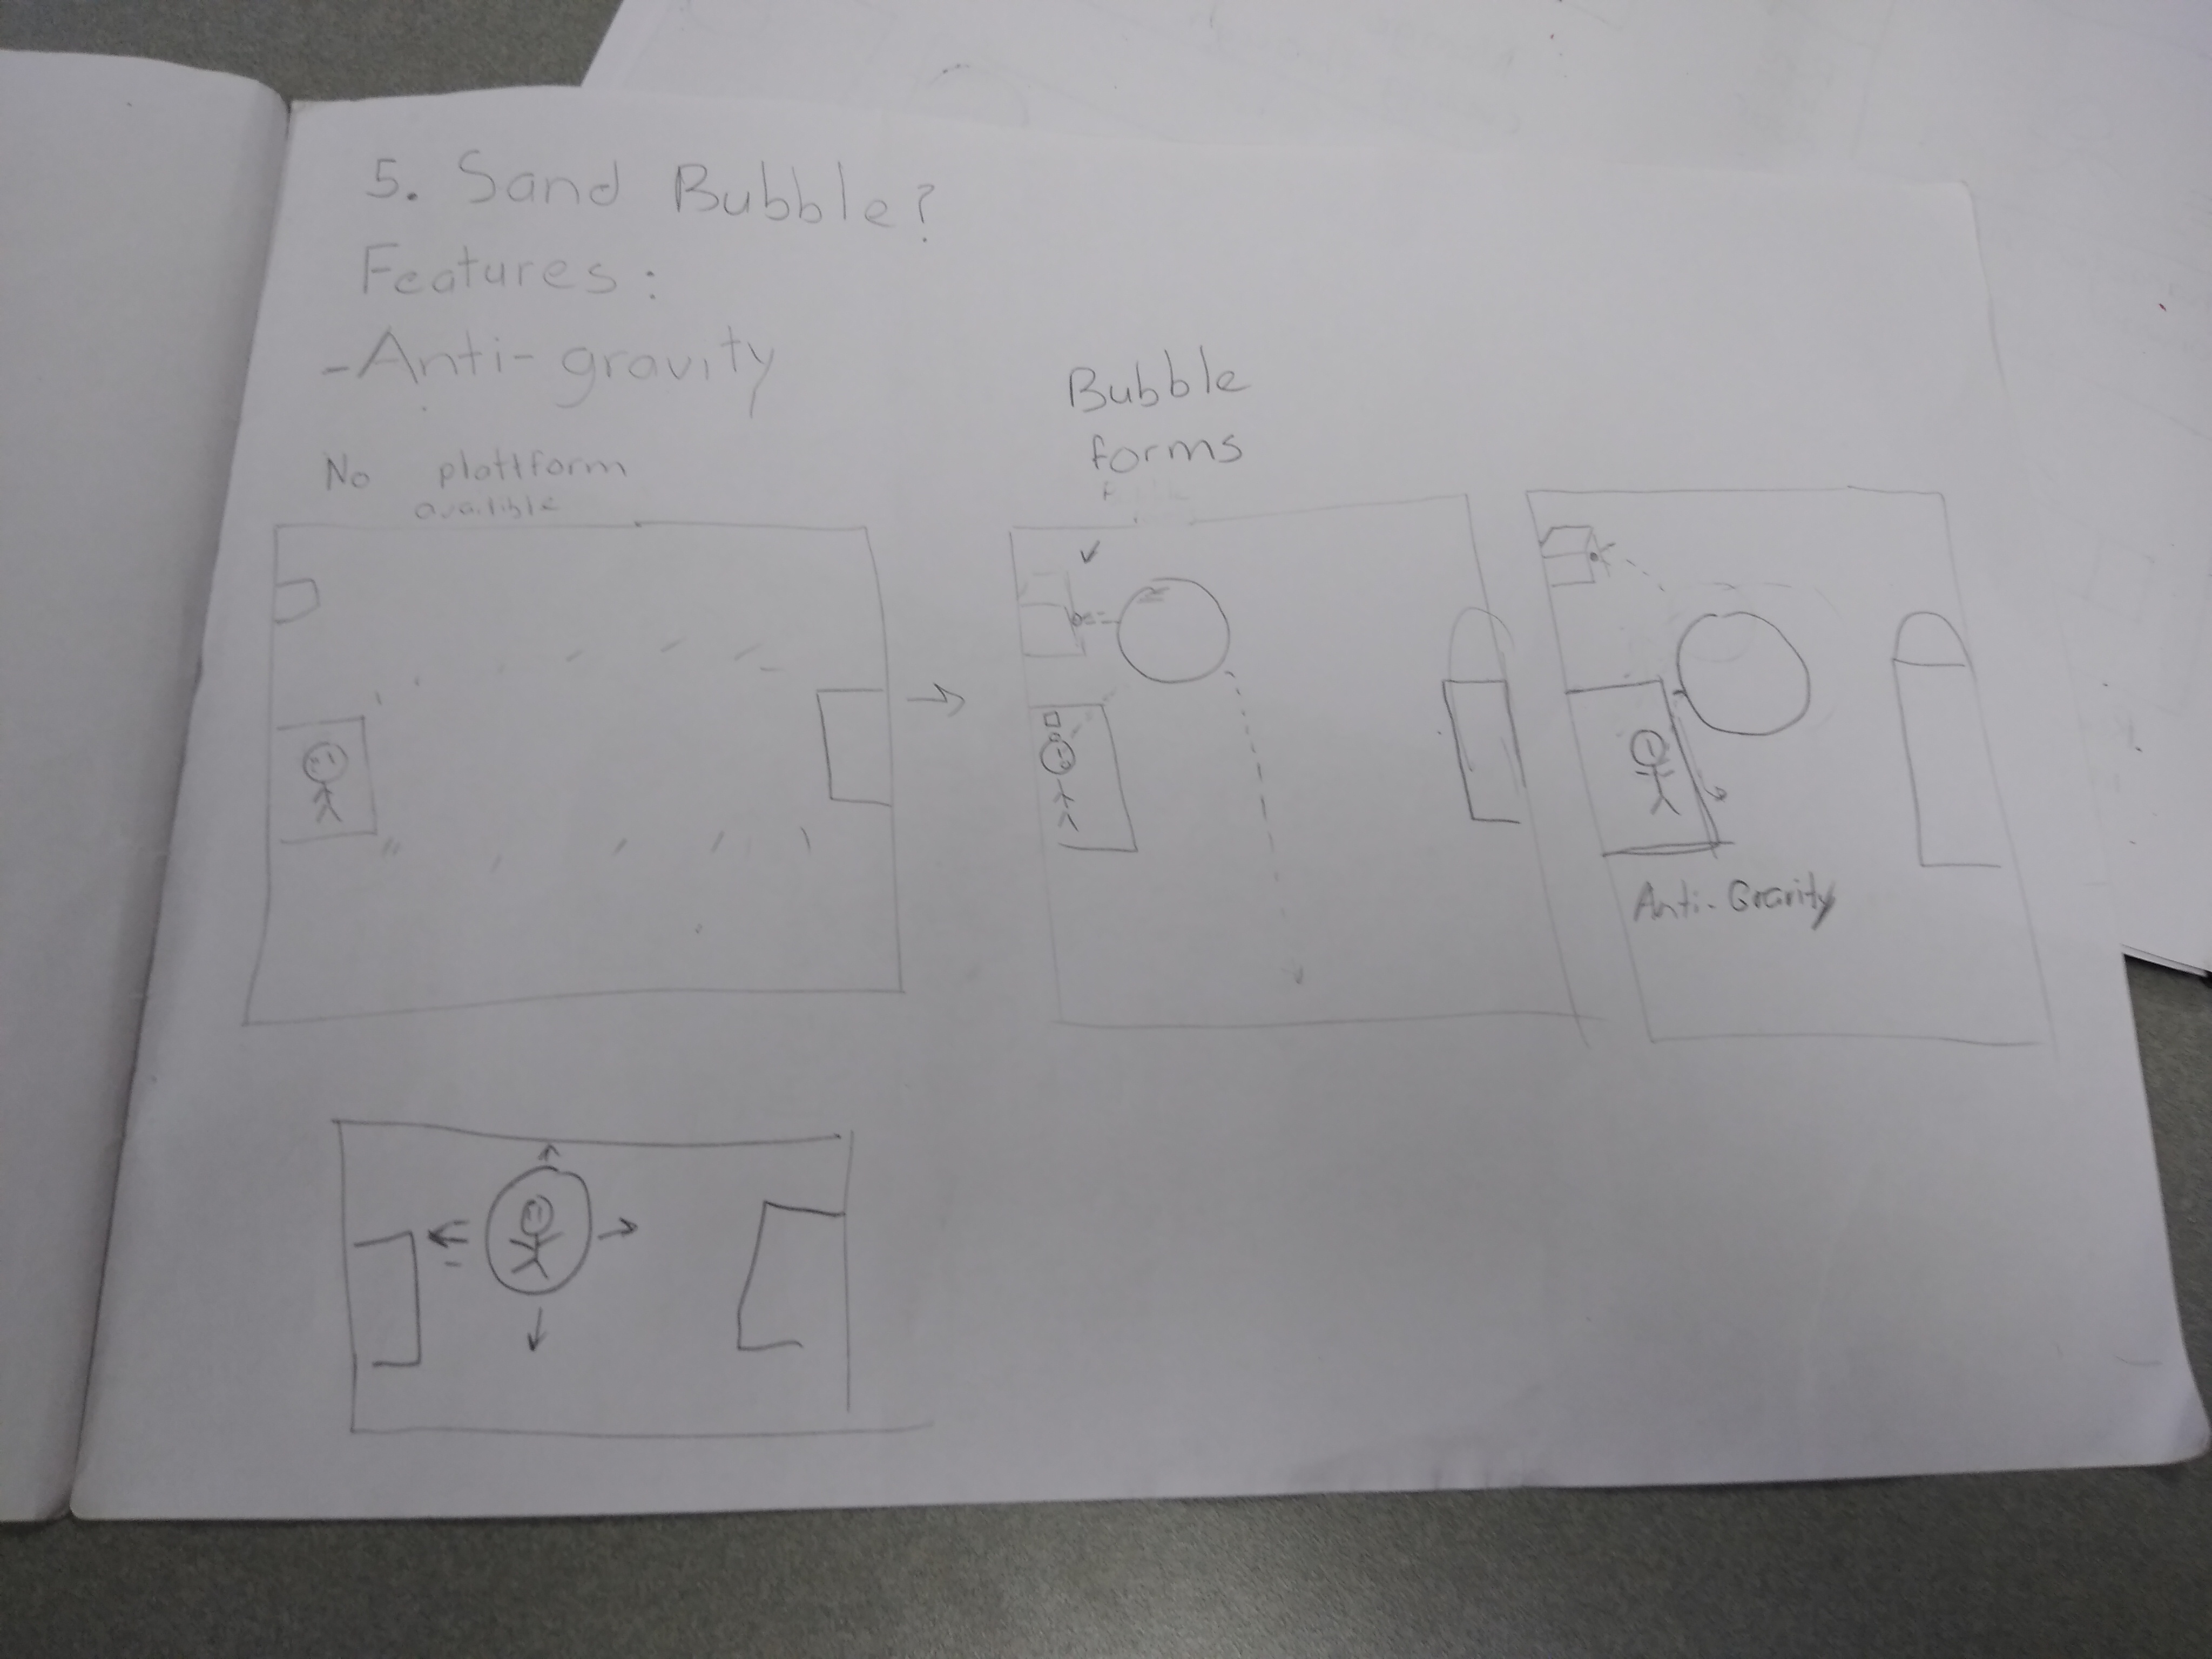 5. Sand Bubble?
Features:
-Anti-gravity
No plattform
availible
Bubble
forms
Anti-Gravity